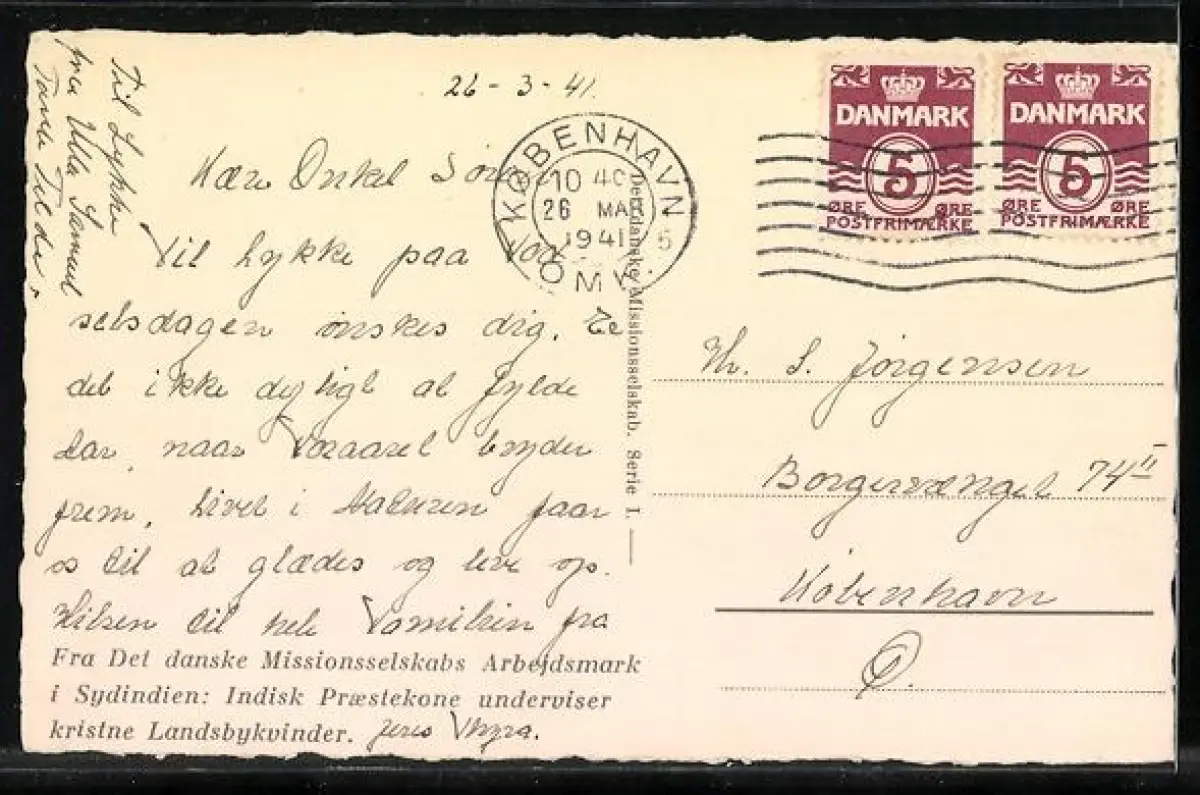 Til Lykke
fra Ulla Samuel
Tante Tilde.
26 - 3 - 41.
Kære Onkel
Til Lykke paa Fød
selsdagen ønskes dig. Er
det ikke dejligt at fylde
Aar, naar Foraaret bryder
frem, Livet i Naturen faar
os til at glædes og leve op.
Hilsen til hele Familien fra
Fra Det danske Missionsselskabs Arbejdsmark
i Sydindien: Indisk Præstekone underviser
kristne Landsbykvinder. Jeres Thyra.
KØBENHAVN
10 40
26 MAR
1941 5
OMK.
Det danske Missionsselskab. Serie I. —
DANMARK
5
ØRE ØRE
POSTFRIMÆRKE
DANMARK
5
ØRE ØRE
POSTFRIMÆRKE
Hr. S. Jørgensen
Borgervænget 74 II
København
Ø.